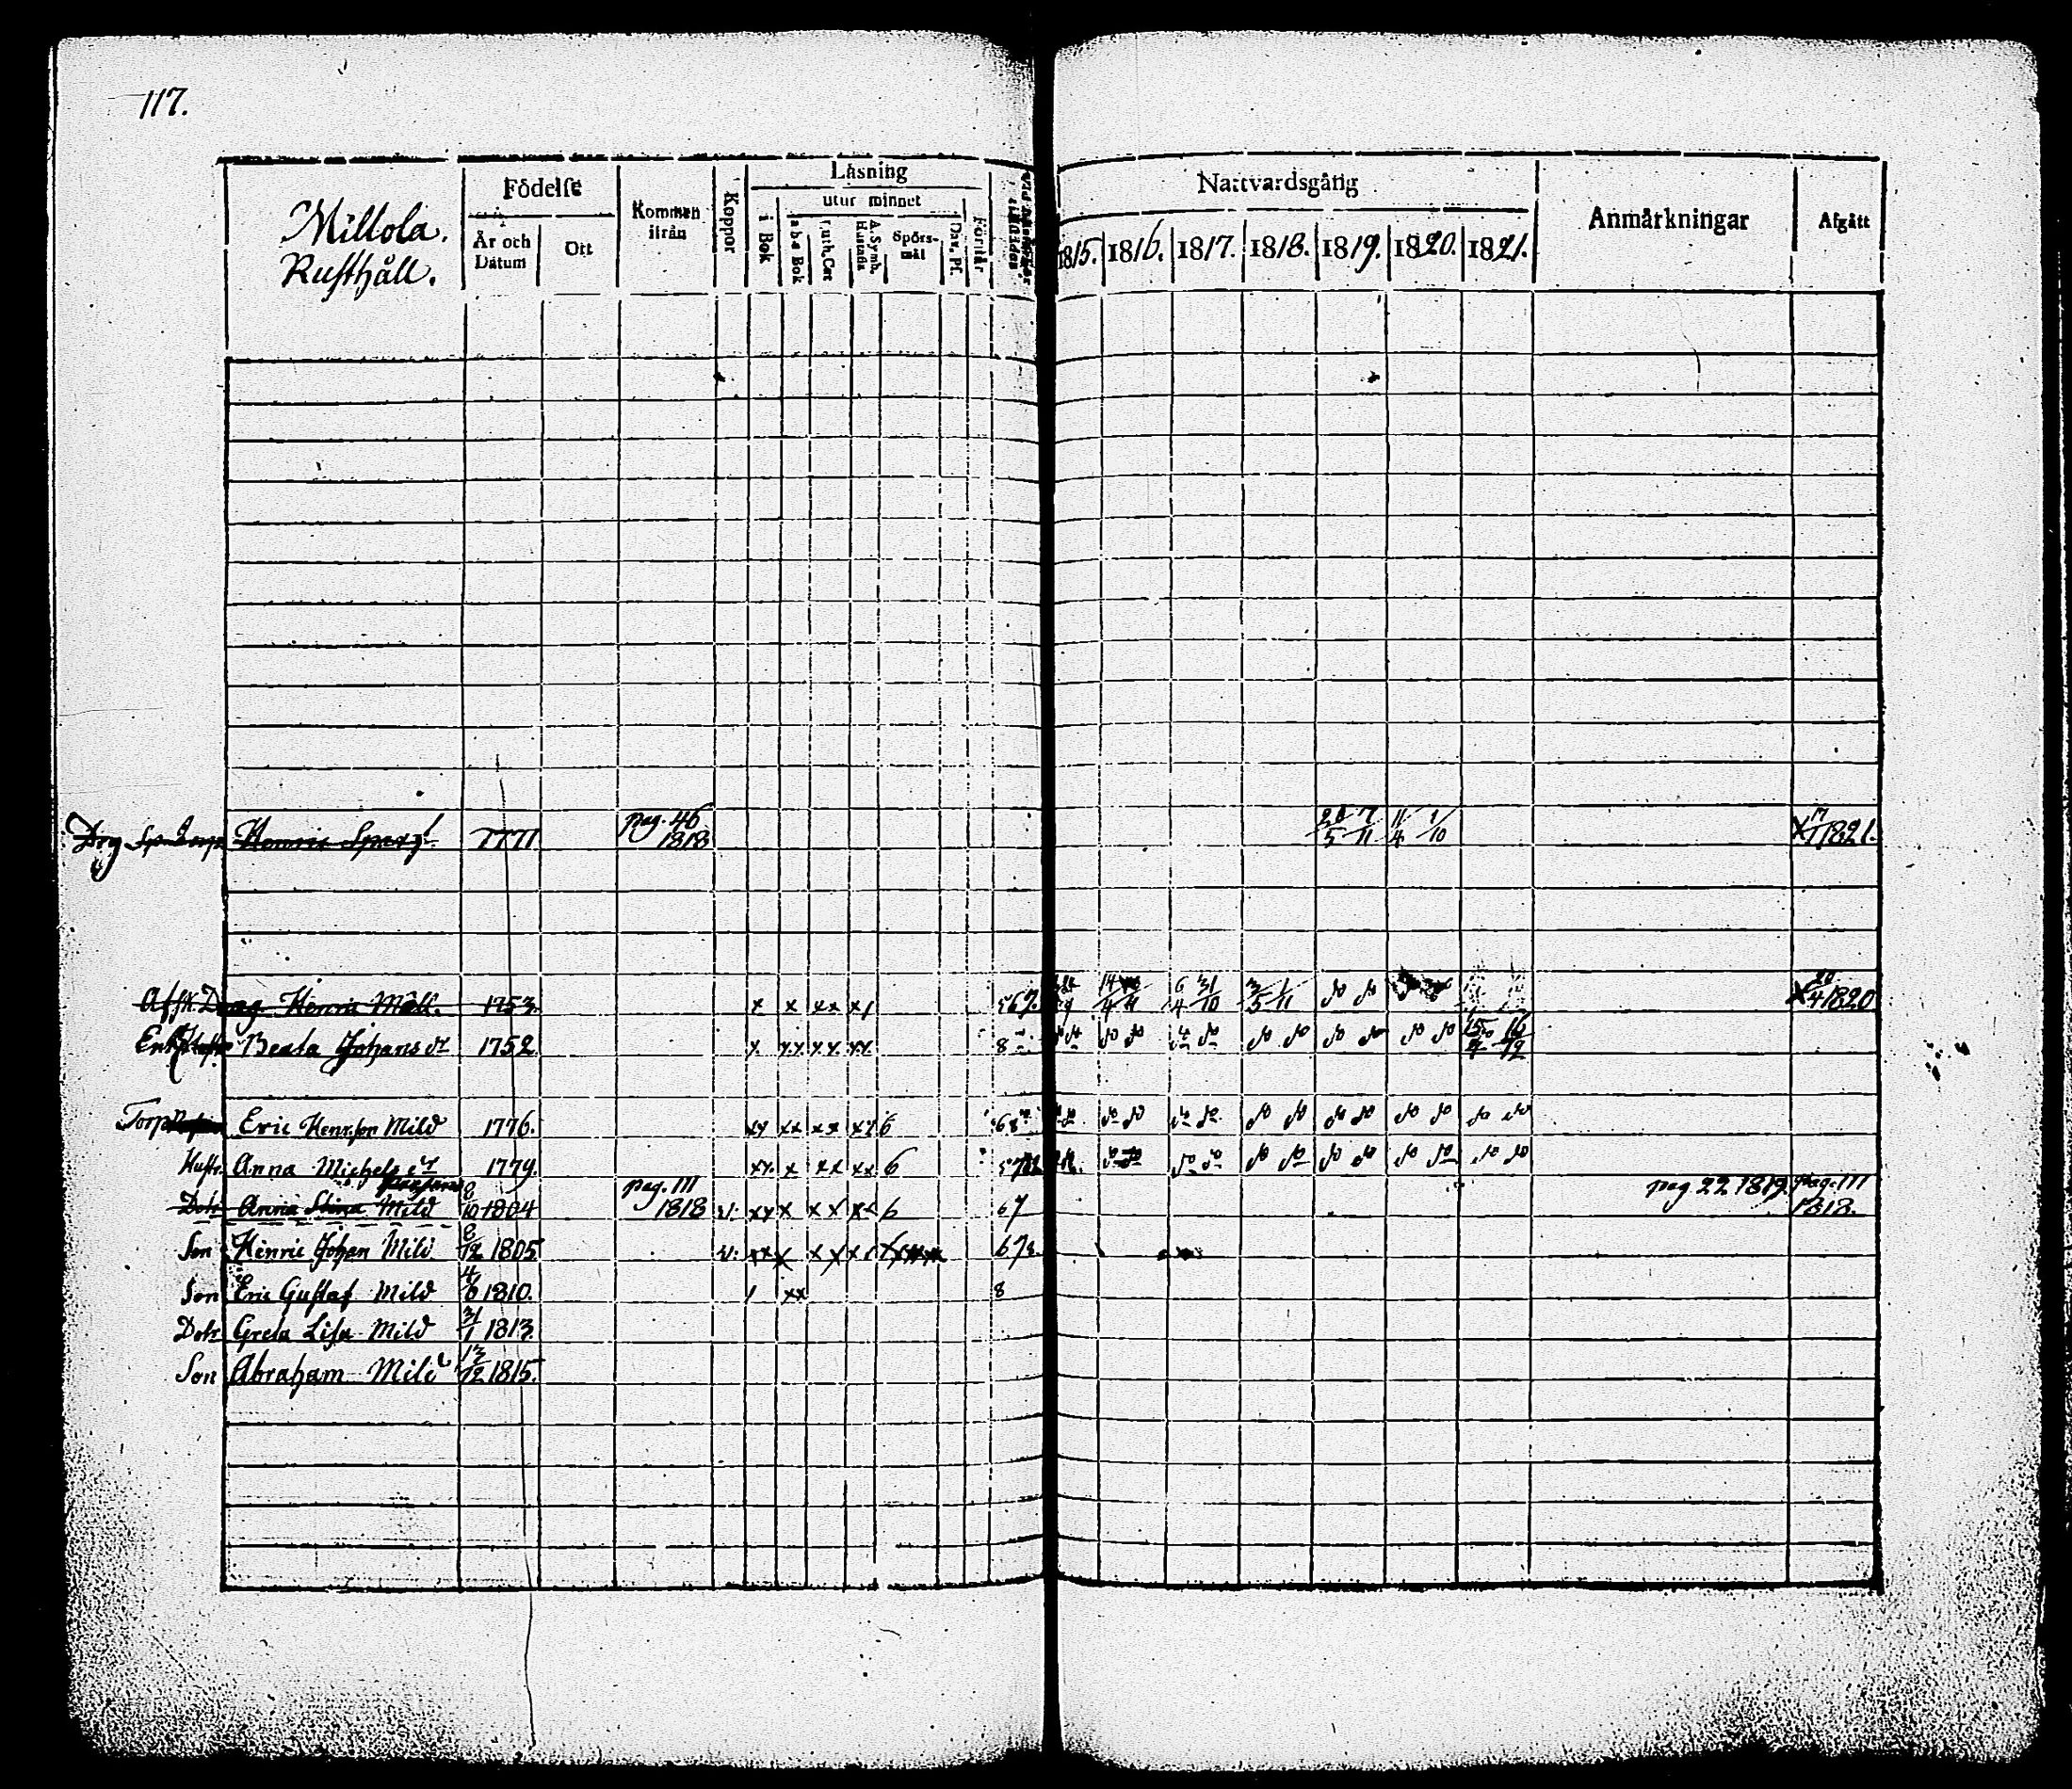 117.
Miltola.
Rusthåll.
Födelse
År och Datum
Ort
Kommen ifrån
Koppor
Läsning
i Bok
utur minnet
a b c Bok
Luth. Cat
A. Symb. Hustafla
Spörsmål
Dav. Ps.
Förstår
Nattvardsgång
1815. 1816. 1817. 1818. 1819. 1820. 1821.
Anmärkningar
Afgått
Henric 1771 pag. 46 1818 20/5 7/11 11/4 1/10 X 17/1 1821.
Afsk. Drag. Henric 1753. x x xx x/ 567. 6/4 31/10 3/5 1/11 do do X 20/4 1820
Beata Johans dr 1752 x xx xx xx 8 do do do do do do do do 16/12
Torp Eric Henrsson Mild 1776. xx xx xx xx 6 do do do do do do do do do do do do
Hustr. Anna Michels dr 1779. xx x xx xx 6 do do do do do do do do do do
Dotr Anna Stina Mild 8/10 1804 pag. 111 1818 v: xx x xx xx 6 67 pag 22 1819. pag. 111 1818.
Son Henric Johan Mild 8/12 1805 v: 678
Son Eric Gustaf Mild 4/6 1810. / xx 8
Dotr Greta Lisa Mild 31/1 1813.
Son Abraham Mild 13/12 1815.